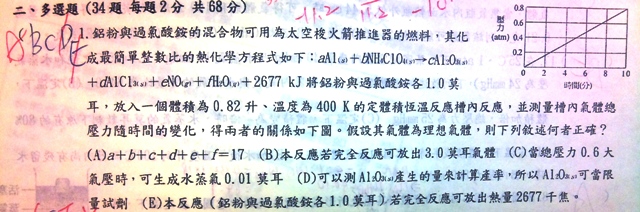 二、多選題 (34題 每題2分 共68分)
-11.2 11.2 -10
ABCDE
1. 鋁粉與過氯酸銨的混合物可用為太空梭火箭推進器的燃料，其化
成最簡單整數比的熱化學方程式如下：aAl(s)+bNH4ClO4(s)→cAl2O3(s)
+dAlCl3(s)+eNO(g)+fH2O(g)+2677 kJ 將鋁粉與過氯酸銨各 1.0 莫
耳，放入一個體積為 0.82 升、溫度為 400 K 的定體積恆溫反應槽內反應，並測量槽內氣體總
壓力隨時間的變化，得兩者的關係如下圖。假設其氣體為理想氣體，則下列敘述何者正確？
(A)a+b+c+d+e+f=17 (B)本反應若完全反應可放出 3.0 莫耳氣體 (C)當總壓力 0.6 大
氣壓時，可生成水蒸氣 0.01 莫耳 (D)可以測 Al2O3(s)產生的量來計算產率，所以 Al2O3(s)可當限
量試劑 (E)本反應（鋁粉與過氯酸銨各 1.0 莫耳）若完全反應可放出熱量 2677 千焦。
壓力(atm)
0.8
0.6
0.4
0.2
0
0 2 4 6 8 10
時間(分)